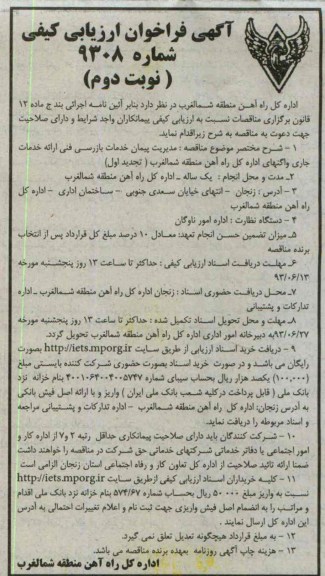 آگهی فراخوان ارزیابی کیفی
شماره ۹۳۰۸
( نوبت دوم )
اداره کل راه آهن منطقه شمالغرب در نظر دارد بنابر آئین نامه اجرائی بند ج ماده ۱۲
قانون برگزاری مناقصات نسبت به ارزیابی کیفی پیمانکاران واجد شرایط و دارای صلاحیت
جهت دعوت به مناقصه به شرح زیراقدام نماید.
۱ - شرح مختصر موضوع مناقصه : مدیریت پیمان خدمات بازرسی فنی ارائه خدمات
جاری واگنهای اداره کل راه آهن منطقه شمالغرب ( تجدید اول)
۲ـ مدت و محل انجام : یک ساله ـ اداره کل راه آهن منطقه شمالغرب
۳ - آدرس : زنجان - انتهای خیابان سعدی جنوبی - ساختمان اداری - اداره کل
راه آهن منطقه شمالغرب
۴ - دستگاه نظارت : اداره امور ناوگان
۵ـ میزان تضمین حسن انجام تعهد: معادل ۱۰ درصد مبلغ کل قرارداد پس از انتخاب
برنده مناقصه
۶ـ مهلت دریافت اسناد ارزیابی کیفی : حداکثر تا ساعت ۱۳ روز پنجشنبه مورخه
۹۳/۰۶/۱۳
۷ـ محل دریافت حضوری اسناد : زنجان اداره کل راه آهن منطقه شمالغرب ـ اداره
تدارکات و پشتیبانی
۸ـ مهلت و محل تحویل اسناد تکمیل شده : حداکثر تا ساعت ۱۳ روز پنجشنبه مورخه
۹۳/۰۶/۲۷به دبیرخانه امور اداری اداره کل راه آهن منطقه شمالغرب تحویل گردد.
۹ - دریافت خرید اسناد ارزیابی از طریق سایت http://iets.mporg.ir بصورت
رایگان می باشد و در صورت خرید اسناد بصورت حضوری شرکت کننده بایستی مبلغ
(۱۰۰,۰۰۰) یکصد هزار ریال بحساب سیبای شماره ۴۰۰۱۰۶۴۰۰۴۰۰۵۷۴۷ بنام خزانه نزد
بانک ملی ( قابل پرداخت درکلیه شعب بانک ملی ایران ) واریز و با ارائه اصل فیش بانکی
به آدرس زنجان: اداره کل راه آهن منطقه شمالغرب - اداره تدارکات و پشتیبانی مراجعه
و اسناد مربوطه را دریافت نماید.
۱۰ - شرکت کنندگان باید دارای صلاحیت پیمانکاری حداقل رتبه ۲ و۷ از اداره کار و
امور اجتماعی یا دفاتر خدماتی شرکتهای خدماتی حق شرکت در مناقصه را خواهند داشت
ضمنا ارائه تائید صلاحیت از اداره کل تعاون کار و رفاه اجتماعی استان زنجان الزامی است
۱۱ - کلیه خریداران اسناد ارزیابی کیفی ازطریق سایت http://iets.mporg.ir
نسبت به واریز مبلغ ۵۰۰۰۰ ریال بحساب شماره ۵۷۴/۶۷ بنام خزانه نزد بانک ملی اقدام
و مراتب را به انضمام اصل فیش واریزی جهت ثبت نام و اعلام تغییرات احتمالی به آدرس
این اداره کل ارسال نمایند .
۱۲ - به مبلغ قرارداد هیچگونه تعدیل تعلق نمی گیرد.
۱۳ - هزینه چاپ آگهی روزنامه بعهده برنده مناقصه می باشد.
اداره کل راه آهن منطقه شمالغرب